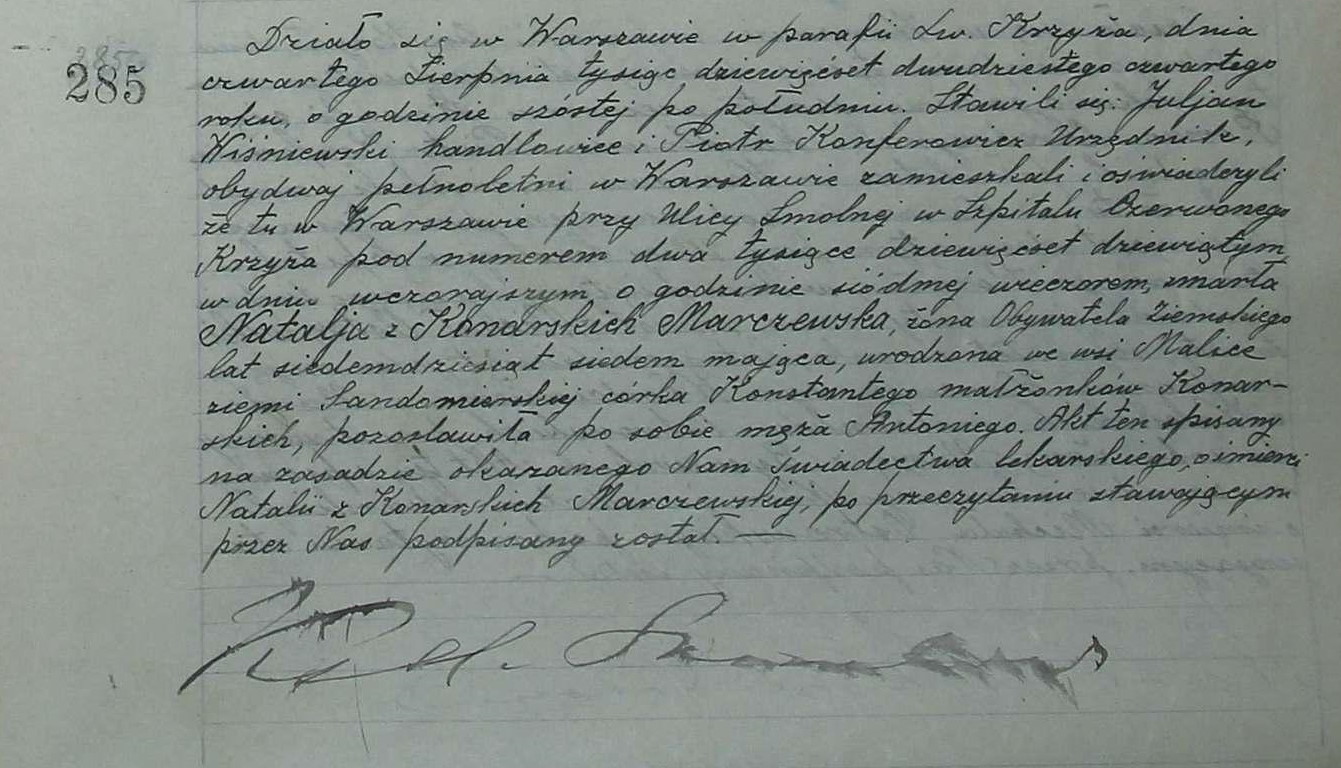 285
Działo się w Warszawie w parafii Św. Krzyża, dnia
czwartego Sierpnia tysiąc dziewięćset dwudziestego czwartego
roku, o godzinie szóstej po południu. Stawili się: Juljan
Wiśniewski handlowiec i Piotr Konferowicz Urzędnik,
obydwaj pełnoletni w Warszawie zamieszkali i oświadczyli
że tu w Warszawie przy Ulicy Smolnej w Szpitalu Czerwonego
Krzyża pod numerem dwa tysiące dziewięćset dziewiątym,
w dniu wczorajszym o godzinie siódmej wieczorem, zmarła
Natalja z Konarskich Marczewska, żona Obywatela Ziemskiego
lat siedemdziesiąt siedem mająca, urodzona we wsi Malice
ziemi Sandomierskiej córka Konstantego małżonków Konar-
skich, pozostawiła po sobie męża Antoniego. Akt ten spisany
na zasadzie okazanego Nam świadectwa lekarskiego, o śmierci
Natalii z Konarskich Marczewskiej, po przeczytaniu stawającym
przez Nas podpisany został. —